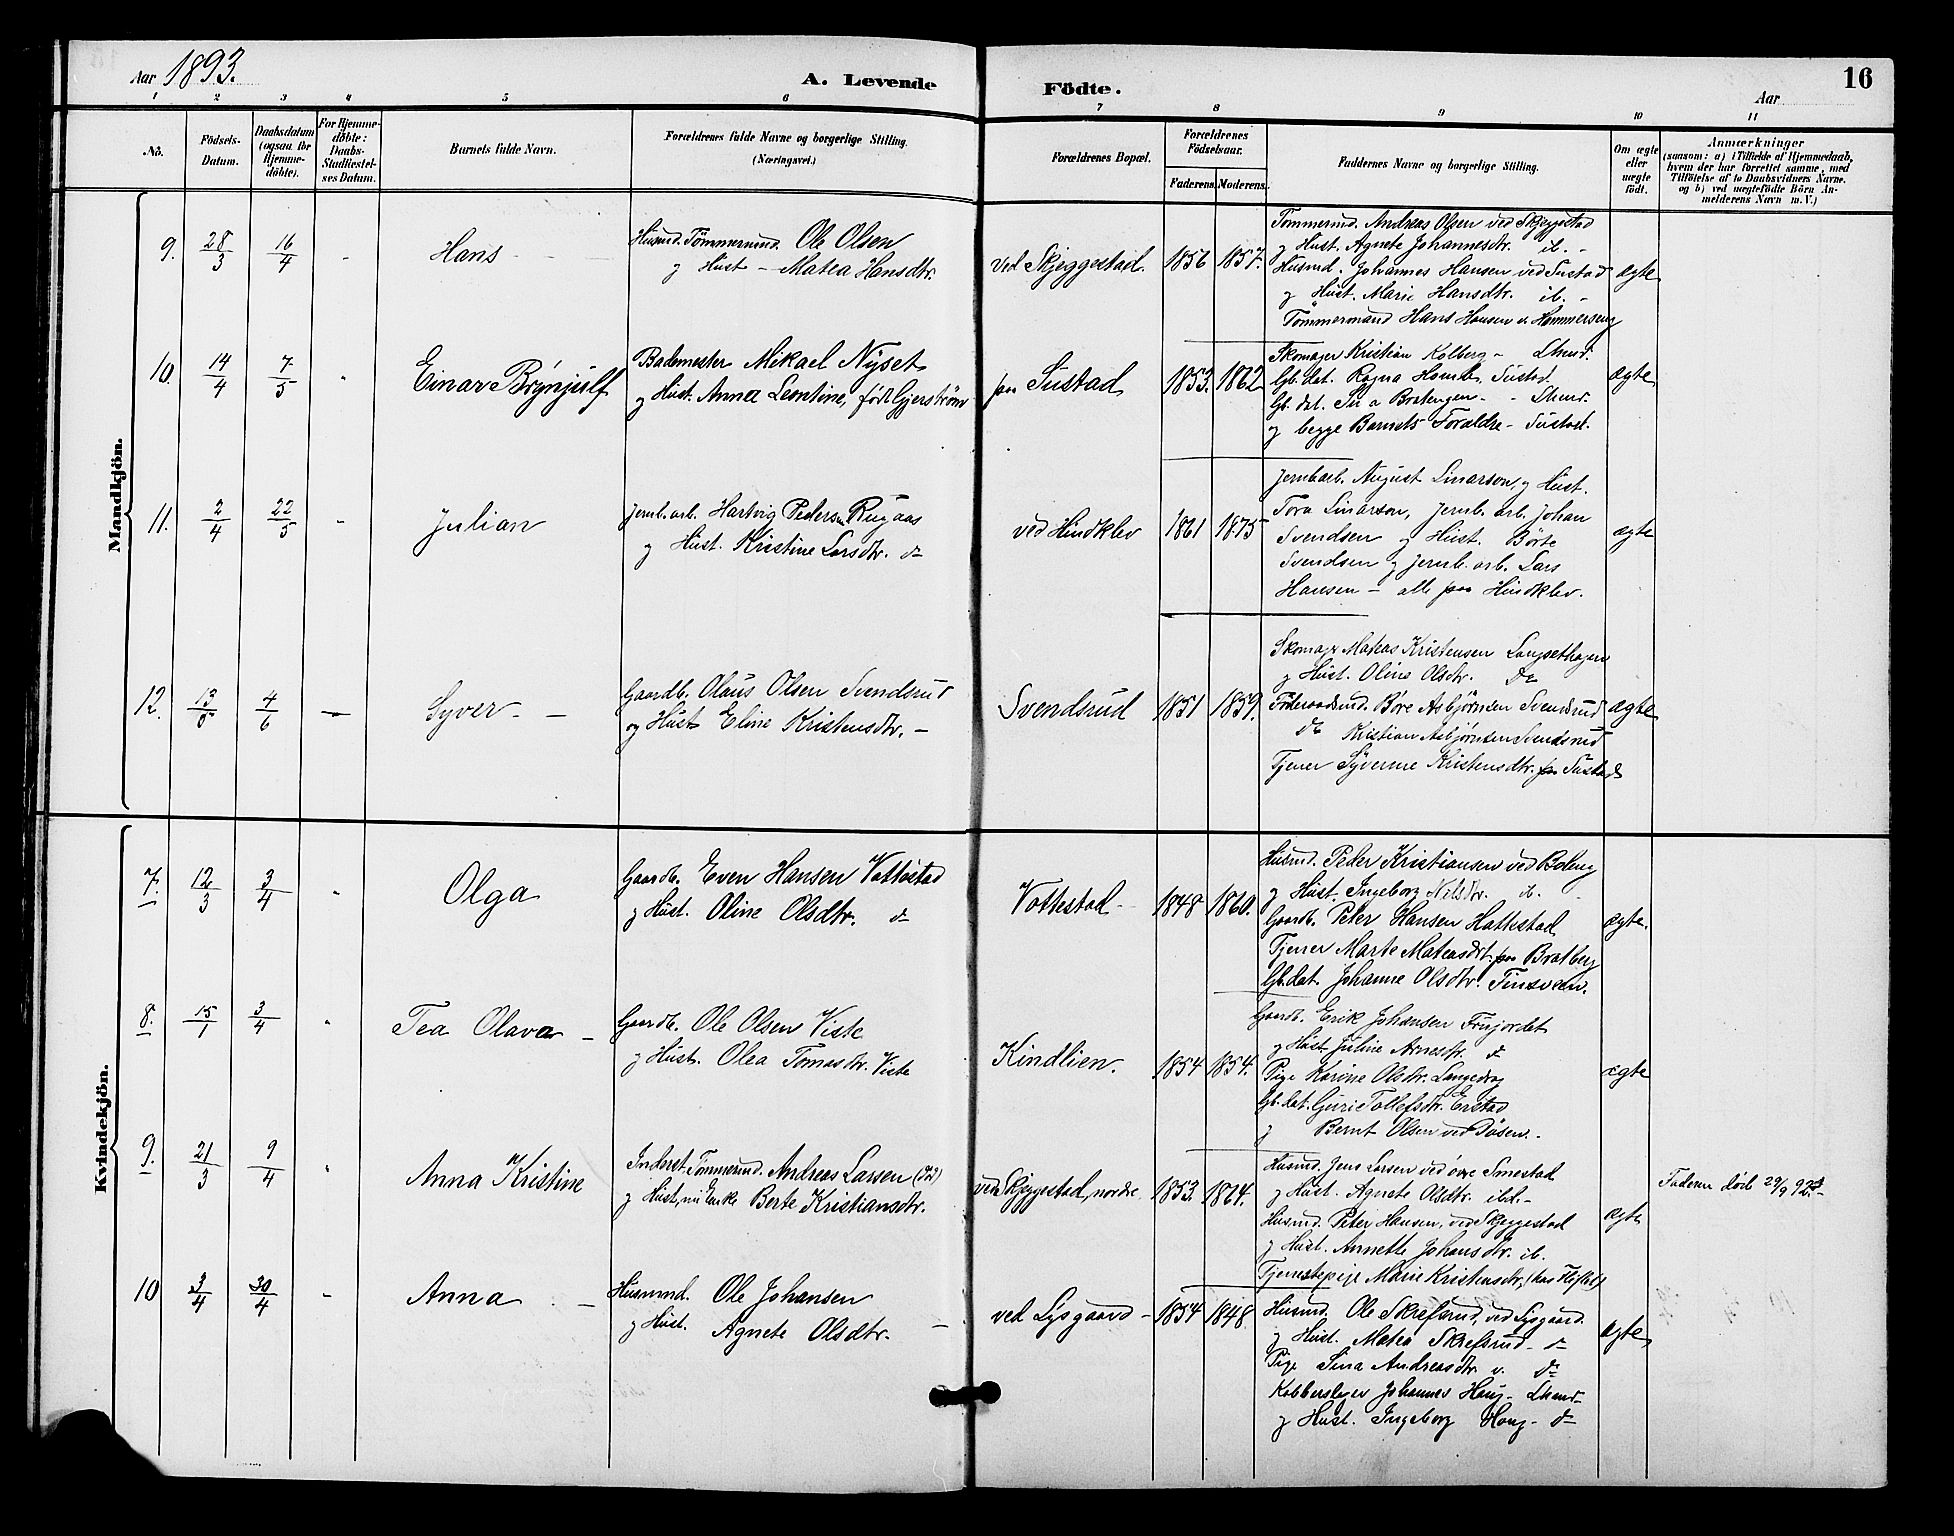 Aar 1893.
A. Levende
Födte.
Aar
16
1 2 3 4 5 6 7 8 9 10 11
No.
Födsels-
Datum.
Daabsdatum
(ogsaa for
Hjemme-
döbte).
For Hjemme-
döbte:
Daabs-
Stadfæstel-
ses Datum.
Barnets fulde Navn.
Forældrenes fulde Navne og borgerlige Stilling.
(Næringsvei.)
Forældrenes Bopæl.
Forældrenes
Födselsaar.
Faderens.
Moderens.
Faddernes Navne og borgerlige Stilling.
Om ægte
eller
uægte
födt.
Anmærkninger
(saasom: a) i Tilfælde af Hjemmedaab,
hvem der har forrettet samme, med
Tilföielse af to Daabsvidners Navne.
og b) ved uægtefödte Börn An-
melderens Navn m. V.)
Mandkjön.
9. 28/3 16/4 - Hans
Husmd. Tömmermd. Ole Olsen
og Hust - Matea Hansdtr.
Ved Skjeggestad. 1856 1857.
Tømmermd. Andreas Olsen ved Skjeggestad
og Hust. Agnete Johannesdtr. ib. -
Husmd. Johannes Hansen ved Sustad
og Hust. Marie Hansdtr. ib. -
Tömmermand Hans Hansen v. Hammerseng
ægte
10. 14/4 7/5 Einar Brynjulf
Bademester Mikael Nyset
og Hust. Anna Leontine, födt Gjerström
paa Sustad 1853. 1862
Skomager Kristian Kolberg - Lhmr.
Gb. dat. Ragna Homb Sustad.
Gb. dat. Bratengen - - Lhmr.
og begge Barnets Foraldre - Sustad.
ægte
11. 2/4 22/5 - Julian
Jernb. arb. Hartvig Pedersen Rugaas
og Hust. Kristine Larsdtr. do
ved Hindklev 1861 1875
Jernbarb. August Linarson, og Hust.
Tora Linarson, Jernb. arb. Johan
Svendsen og Hust. Börte
Svendsen og Jernb. arb. Lars
Hansen - alle paa Hindklev.
ægte
12. 13/5 4/6 - Syver - -
Gaardb. Olaus Olsen Svendsrud
og Hust Eline Kristensdtr. -
Svendsrud 1851 1859.
Skomager Mateas Kristensen Langsethagen
og Hust. Oline Olsdtr. Do
Föderaadsmd. Bóre Asbjörnsen Svendsrud
do Kristian Asbjörnsen Svendsrud
Tjener Syverine Kristensdtr. paa Sustad
ægte
Kvindekjön.
7. 12/3 3/4 Olga
Gaardb. Even Hansen Vottestad
og Hust. Oline Olsdtr. do
Vottestad - 1848 1860.
Husmd. Peder Kristiansen ved Boleng
og Hust. Ingeborg Nilsdtr. ib.
Gaardb. Peter Hansen Hattestad
Tjener Marte Mateasdtr. paa Bratberg
Gb. dat. Johanne Olsdtr. Tinsveen.
ægte.
8. 15/1 3/4 Tea Olava -
Gaardb. Ole Olsen Viste
og Hust. Olea Tomasdtr. Viste
Kindlien. 1854 1854.
Gaardb. Erik Johansen Frujordet
og Hust Juline Arnesdtr. do
Pige Karine Olsdtr. Langedrag
Gb. dat. Guri Tollefsdtr. Erstad
og Bernt Olsen ved Döserv.
ægte
9. 21/3 9/4 Anna Kristine
Inderst, Tømmermd. Andreas Larsen (42)
og Hust, nu Enke Berte Kristiansdtr.
ved Skjeggestad, nordre 1853. 1864.
Husmd. Jens Larsen ved övre Smestad
og Hust. Agnete Olsdtr. ibd. -
Husmd. Peter Hansen, ved Skjeggestad
og Hust. Annette Johansdtr. ib.
Tjenestepige Marie Kristensdtr,
ægte
Faderen död 29/9 92.
10 3/4 30/4 - Anna -
Husmnd. Ole Johansen
og Hust. Agnete Olsdtr.
ved Lysgaard - 1854 1848
Husmd. Ole Skrefsrud, ved Lysgaard.
og Hust. Matea Skrefsrud - do
Pige Sina Andreasdtr. v. do
Kobberslager Johannes Haug - Lhmr -
og Hust. Ingeborg Haug - do
ægte